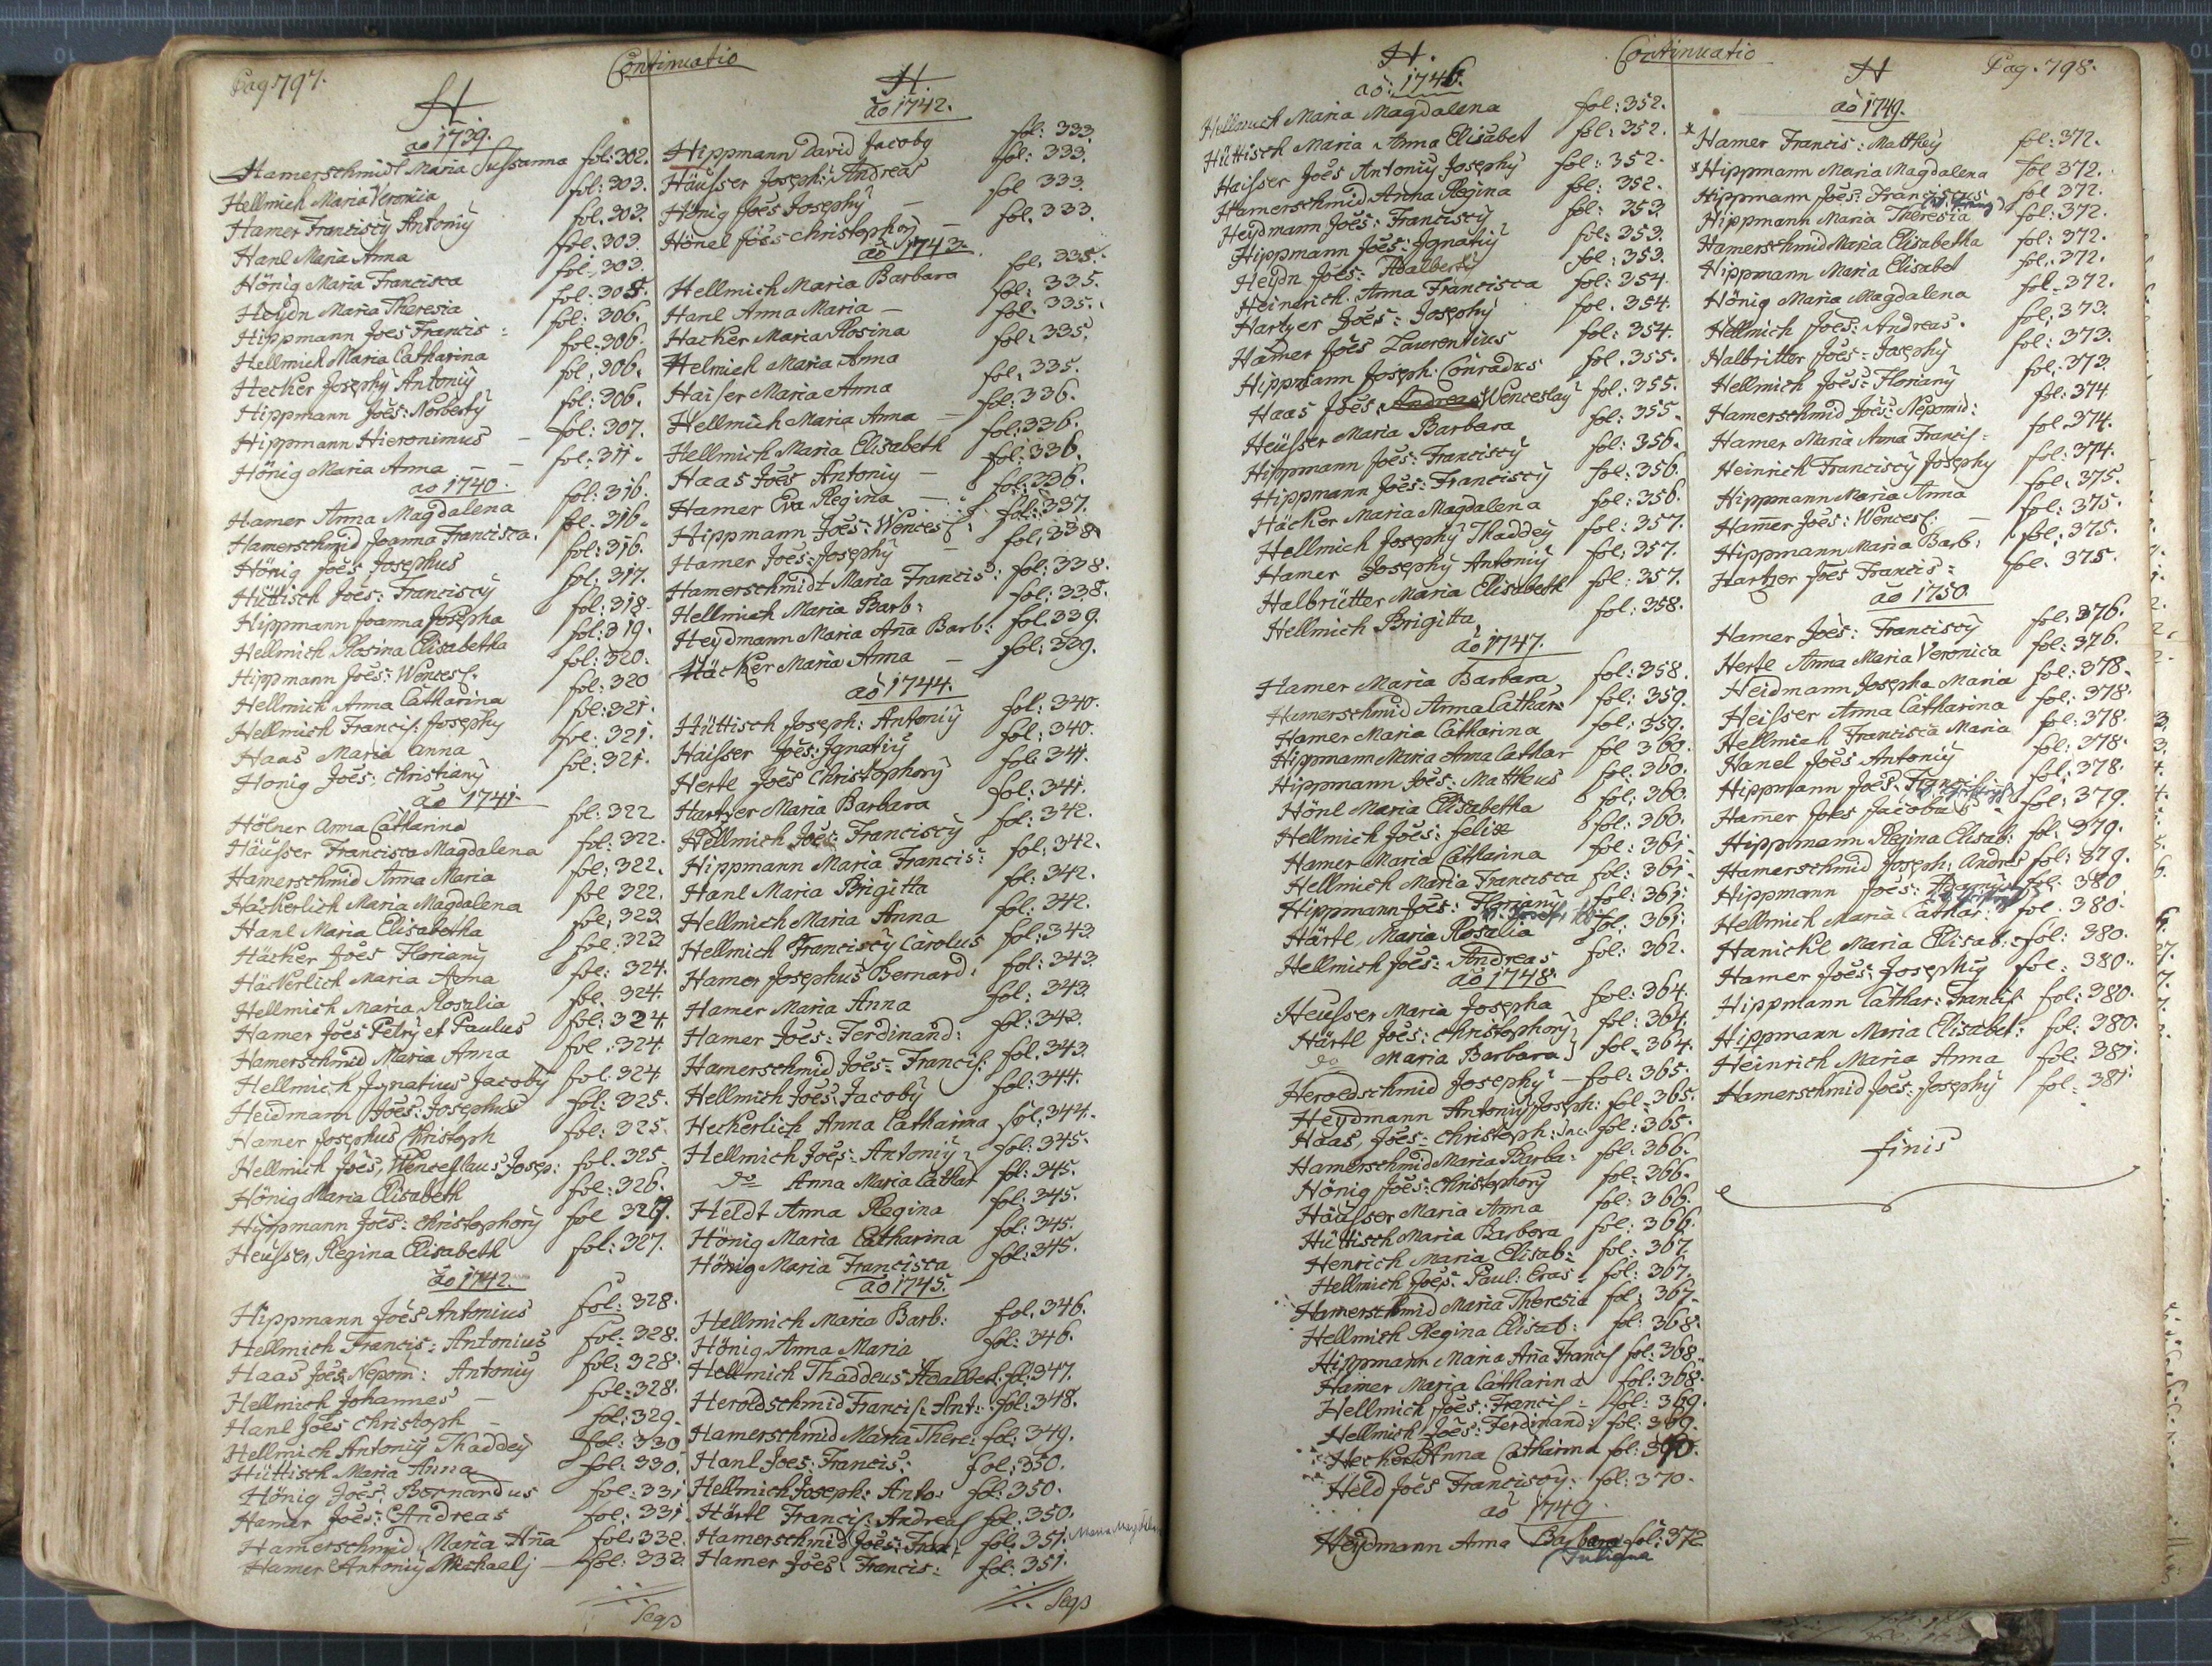 Pag 797.
Continuatio
H
ao 1739.
Hamerschmidt Maria Sussanna fol: 302.
Hellmich Maria Veronica fol: 303.
Hamer Franciscy Antoniÿ fol: 303.
Hanl Maria Anna fol: 303.
Hönig Maria Francisca fol: 303.
Heÿdn Maria Theresia fol: 305.
Hippmann Joes Francis: fol: 306.
Hellmich Maria Catharina fol: 306.
Hecker Josephÿ Antoniÿ fol: 306.
Hippmann Joẽs: Norbertÿ fol: 306.
Hippmann Hieronimus – fol: 307.
Hönig Maria Anna – – fol: 311.
ao 1740.
Hamer Anna Magdalena fol: 316.
Hamerschmid Joanna Francisca. fol: 316.
Hönig Joẽs Josephus fol: 316.
Hüttisch Joẽs: Franciscÿ fol: 317.
Hippmann Joanna Josepha fol: 318.
Hellmich Rosina Elisabetha fol: 319.
Hippmann Joẽs: Wencesl: fol: 320.
Hellmich Anna Catharina fol: 320
Hellmich Francis: Josephÿ fol: 321.
Haas Maria anna fol: 321.
Honig Joẽs: christianÿ fol: 321.
ao 1741.
Hölner Anna Catharina fol: 322
Häusser Francisca Magdalena fol: 322.
Hamerschmid Anna Maria fol: 322.
Häckerlich Maria Magdalena fol 322.
Hanl Maria Elisabetha fol: 323
Häcker Joẽs Florianÿ fol: 323
Häckerlich Maria Anna fol: 324.
Hellmich Maria Rosalia fol: 324.
Hamer Joẽs Petrÿ et Paulus fol: 324.
Hamerschmid Maria Anna fol: 324.
Hellmich Ignatius Jacobÿ fol: 324.
Heidmann Joẽs: Josephus fol: 325.
Hamer Josephus Christoph fol: 325.
Hellmich Joẽs, Wenceslaus Josep: fol. 325
Hönig Maria Elisabeth fol: 326.
Hippmann Joẽs: christophorÿ fol 327.
Heusser, Regina Elisabeth fol: 327.
ao 1742.
Hippmann Joẽs Antonius fol: 328.
Hellmich Francis: Antonius fol: 328.
Haas Joẽs: Nepom: Antoniÿ fol: 328.
Hellmich Johannes – fol: 328.
Hanl Joẽs christoph – fol: 329.
Hellmich Antoniÿ Thaddeÿ fol: 330.
Hüttisch Maria Anna fol: 330.
Hönig Joẽs: Bernardus fol: 331.
Hamer Joẽs: Andreas fol: 331.
Hamerschmid Maria Añna fol: 332.
Hamer Antoniÿ Michaelj – fol: 332.
Seqs
H.
ao 1742.
Hippmann David Jacobÿ fol: 333.
Häusser Joseph: Andreas fol: 333.
Hönig Joẽs Josephÿ – fol 333.
Hönel Joẽs christophorÿ – fol. 333.
ao 1743.
Hellmich Maria Barbara fol: 335.
Hanl Anna Maria – fol: 335.
Hacker Maria Rosina fol: 335.
Helmich Maria Anna fol: 335.
Haiser Maria Anna fol: 335.
Hellmich Maria Anna – fol: 336.
Hellmich Maria Elisabeth fol: 336.
Haas Joẽs Antoniÿ – fol: 336.
Hamer Eva Regina – fol: 336.
Hippmann Joẽs: Wencesl: fol: 337.
Hamer Joẽs: Josephÿ – fol: 338
Hamerschmidt Maria Francis: fol: 338.
Hellmich Maria Barb: fol: 338.
Heÿdmann Maria Añna Barb: fol. 339.
Häcker Maria Anna – fol: 339.
ao 1744.
Hüttisch Joseph: Antoniÿ fol: 340.
Haisser Joẽs: Ignatiÿ fol: 340.
Hertl Joẽs Christophorÿ fol: 341.
Hartzer Maria Barbara fol: 341.
Hellmich Joẽs: Franciscÿ fol: 342.
Hippmann Maria Francis: fol: 342.
Hanl Maria Brigitta fol: 342.
Hellmich Maria Anna fol: 342.
Hellmich Franciscÿ Carolus fol: 343
Hamer Josephus Bernard: fol: 343.
Hamer Maria Anna fol: 343.
Hamer Joẽs: Ferdinand: fol: 343.
Hamerschmid Joẽs: Francis: fol: 343.
Hellmich Joẽs: Jacobÿ fol: 344.
Heckerlich Anna Catharina fol: 344.
Hellmich Joẽs: Antoniÿ fol: 345.
do Anna Maria Cathar fol: 345.
Heldt Anna Regina fol: 345.
Hönig Maria Catharina fol: 345.
Hönig Maria Francisca fol: 345.
ao 1745.
Hellmich Maria Barb: fol: 346.
Hönig Anna Maria fol: 346.
Hellmich Thaddeus Adalbert: fol: 347.
Heroldschmid Francis: Ant: fol: 348.
Hamerschmid Maria There: fol: 349.
Hanl Joes: Francis: fol: 350.
Hellmich Joseph: Anto: fol: 350.
Härtl Francis: Andreas fol: 350.
Hamerschmid Joẽs: Fran: fol: 351.
Hamer Joẽs: Francis: fol: 351.
Seqs
Continuatio
Pag. 798.
H.
ao: 1746.
Hellmich Maria Magdalena fol: 352.
Hüttisch Maria Anna Elisabet fol: 352.
Haisser Joẽs Antoniÿ Josephÿ fol: 352.
Hamerschmid Anna Regina fol: 352.
Heÿdmann Joẽs: Franciscÿ fol: 353.
Hippmann Joẽs: Ignatiÿ fol: 353.
Heÿdn Joẽs: Adalbertÿ fol: 353.
Heinrich Anna Francisca fol: 354.
Hartzer Joẽs: Josephÿ fol. 354.
Hamer Joẽs Laurentius fol: 354.
Hippmann Joseph: Conradus fol. 355.
Haas Joẽs: Andreas Wenceslaÿ fol: 355.
Heüsser Maria Barbara fol: 355.
Hippmann Joẽs: Franciscÿ fol: 356.
Hippmann Joẽs: Franciscÿ fol: 356.
Häcker Maria Magdalena fol: 356.
Hellmich Josephÿ Thaddeÿ fol: 357.
Hamer Josephÿ Antoniÿ fol: 357.
Halbrütter Maria Elisabeth fol: 357.
Hellmich Brigitta fol: 358.
ao 1747.
Hamer Maria Barbara fol: 358.
Hamerschmid Anna Cathar: fol: 359.
Hamer Maria Catharina fol: 359.
Hippmann Maria Anna Cathar fol 360.
Hippmann Joẽs: Mattheus fol. 360.
Hönl Maria Elisabetha fol: 360.
Hellmich Joẽs: felix fol: 360.
Hamer Maria Catharina fol: 361.
Hellmich Maria Francisca fol: 361.
Hippmann Joẽs: Florianÿ fol: 361.
Härtl Maria Rosalia fol: 361.
Hellmich Joẽs: Andreas fol: 362.
ao 1748.
Heusser Maria Josepha fol: 364.
Härtl Joẽs: christophorÿ fol: 364.
do Maria Barbara fol: 364.
Heroldschmid Josephÿ – fol: 365.
Heÿdmann Antoniÿ Joseph: fol: 365.
Haas, Joẽs: christoph: Jac: fol: 365.
Hamerschmid Maria Barba: fol: 366.
Hönig Joẽs: christophorÿ fol: 366.
Häusser Maria Anna fol: 366.
Hüttisch Maria Barbara fol: 366.
Henrich Maria Elisab: fol: 367
Hellmich Joẽs: Paul: Eras: fol: 367.
Hamerschmid Maria Theresia fol: 367.
Hellmich Regina Elisab: fol: 368.
Hippmann Maria Añna Francis fol: 368.
Hamer Maria Catharina fol: 368.
Hellmich Joẽs: Francis: fol: 369.
Hellmich Joẽs: Ferdinand: fol: 369.
Hecker Anna Catharina fol: 370.
Held Joẽs Franciscÿ: fol: 370.
ao 1749
Heÿdmann Anna Barbara fol: 372
Juliana
H
ao 1749.
Hamer Francis: Mattheÿ fol: 372.
Hippmann Maria Magdalena fol 372.
Hippmann Joẽs: Franciscus fol 372.
Hippmann Maria Theresia fol: 372.
Hamerschmid Maria Elisabetha fol: 372.
Hippmann Maria Elisabet fol: 372.
Hönig Maria Magdalena fol: 372.
Hellmich Joẽs: Andreas. fol: 373.
Halbritter Joẽs: Josephÿ fol: 373.
Hellmich Joẽs: Florianÿ fol: 373
Hamerschmid Joẽs: Nepomid: fol: 374
Hamer Maria Anna Francis: fol: 374.
Heinrich Franciscÿ Josephÿ fol: 374.
Hippmann Maria Anna fol: 375.
Hamer Joẽs: Wencesl: – fol: 375.
Hippmann Maria Barb: fol: 375.
Hartzer Joẽs Francis: fol: 375.
ao 1750.
Hamer Joẽs: Franciscÿ fol: 376.
Hertl Anna Maria Veronica fol: 376.
Heidmann Josepha Maria fol: 378.
Heisser Anna Catharina fol: 378.
Hellmich Francisca Maria fol: 378.
Hanel Joẽs Antoniÿ fol: 378.
Hippmann Joẽs: Francis: fol: 378.
Ham̃er Joẽs Jacobus fol: 379.
Hippmann Regina Elisab: fol: 379.
Hamerschmid Joseph: Andres fol: 379.
Hippmann Joẽs: Adamÿ fol: 380
Hellmich Maria Cathar: fol: 380.
Hanickl Maria Elisab: fol: 380.
Hamer Joẽs: Josephÿ fol: 380.
Hippmann Cathar: Francis fol: 380.
Hippmann Maria Elisabet: fol: 380.
Heinrich Maria Anna fol: 381.
Hamerschmid Joẽs: Josephÿ fol: 381.
finis